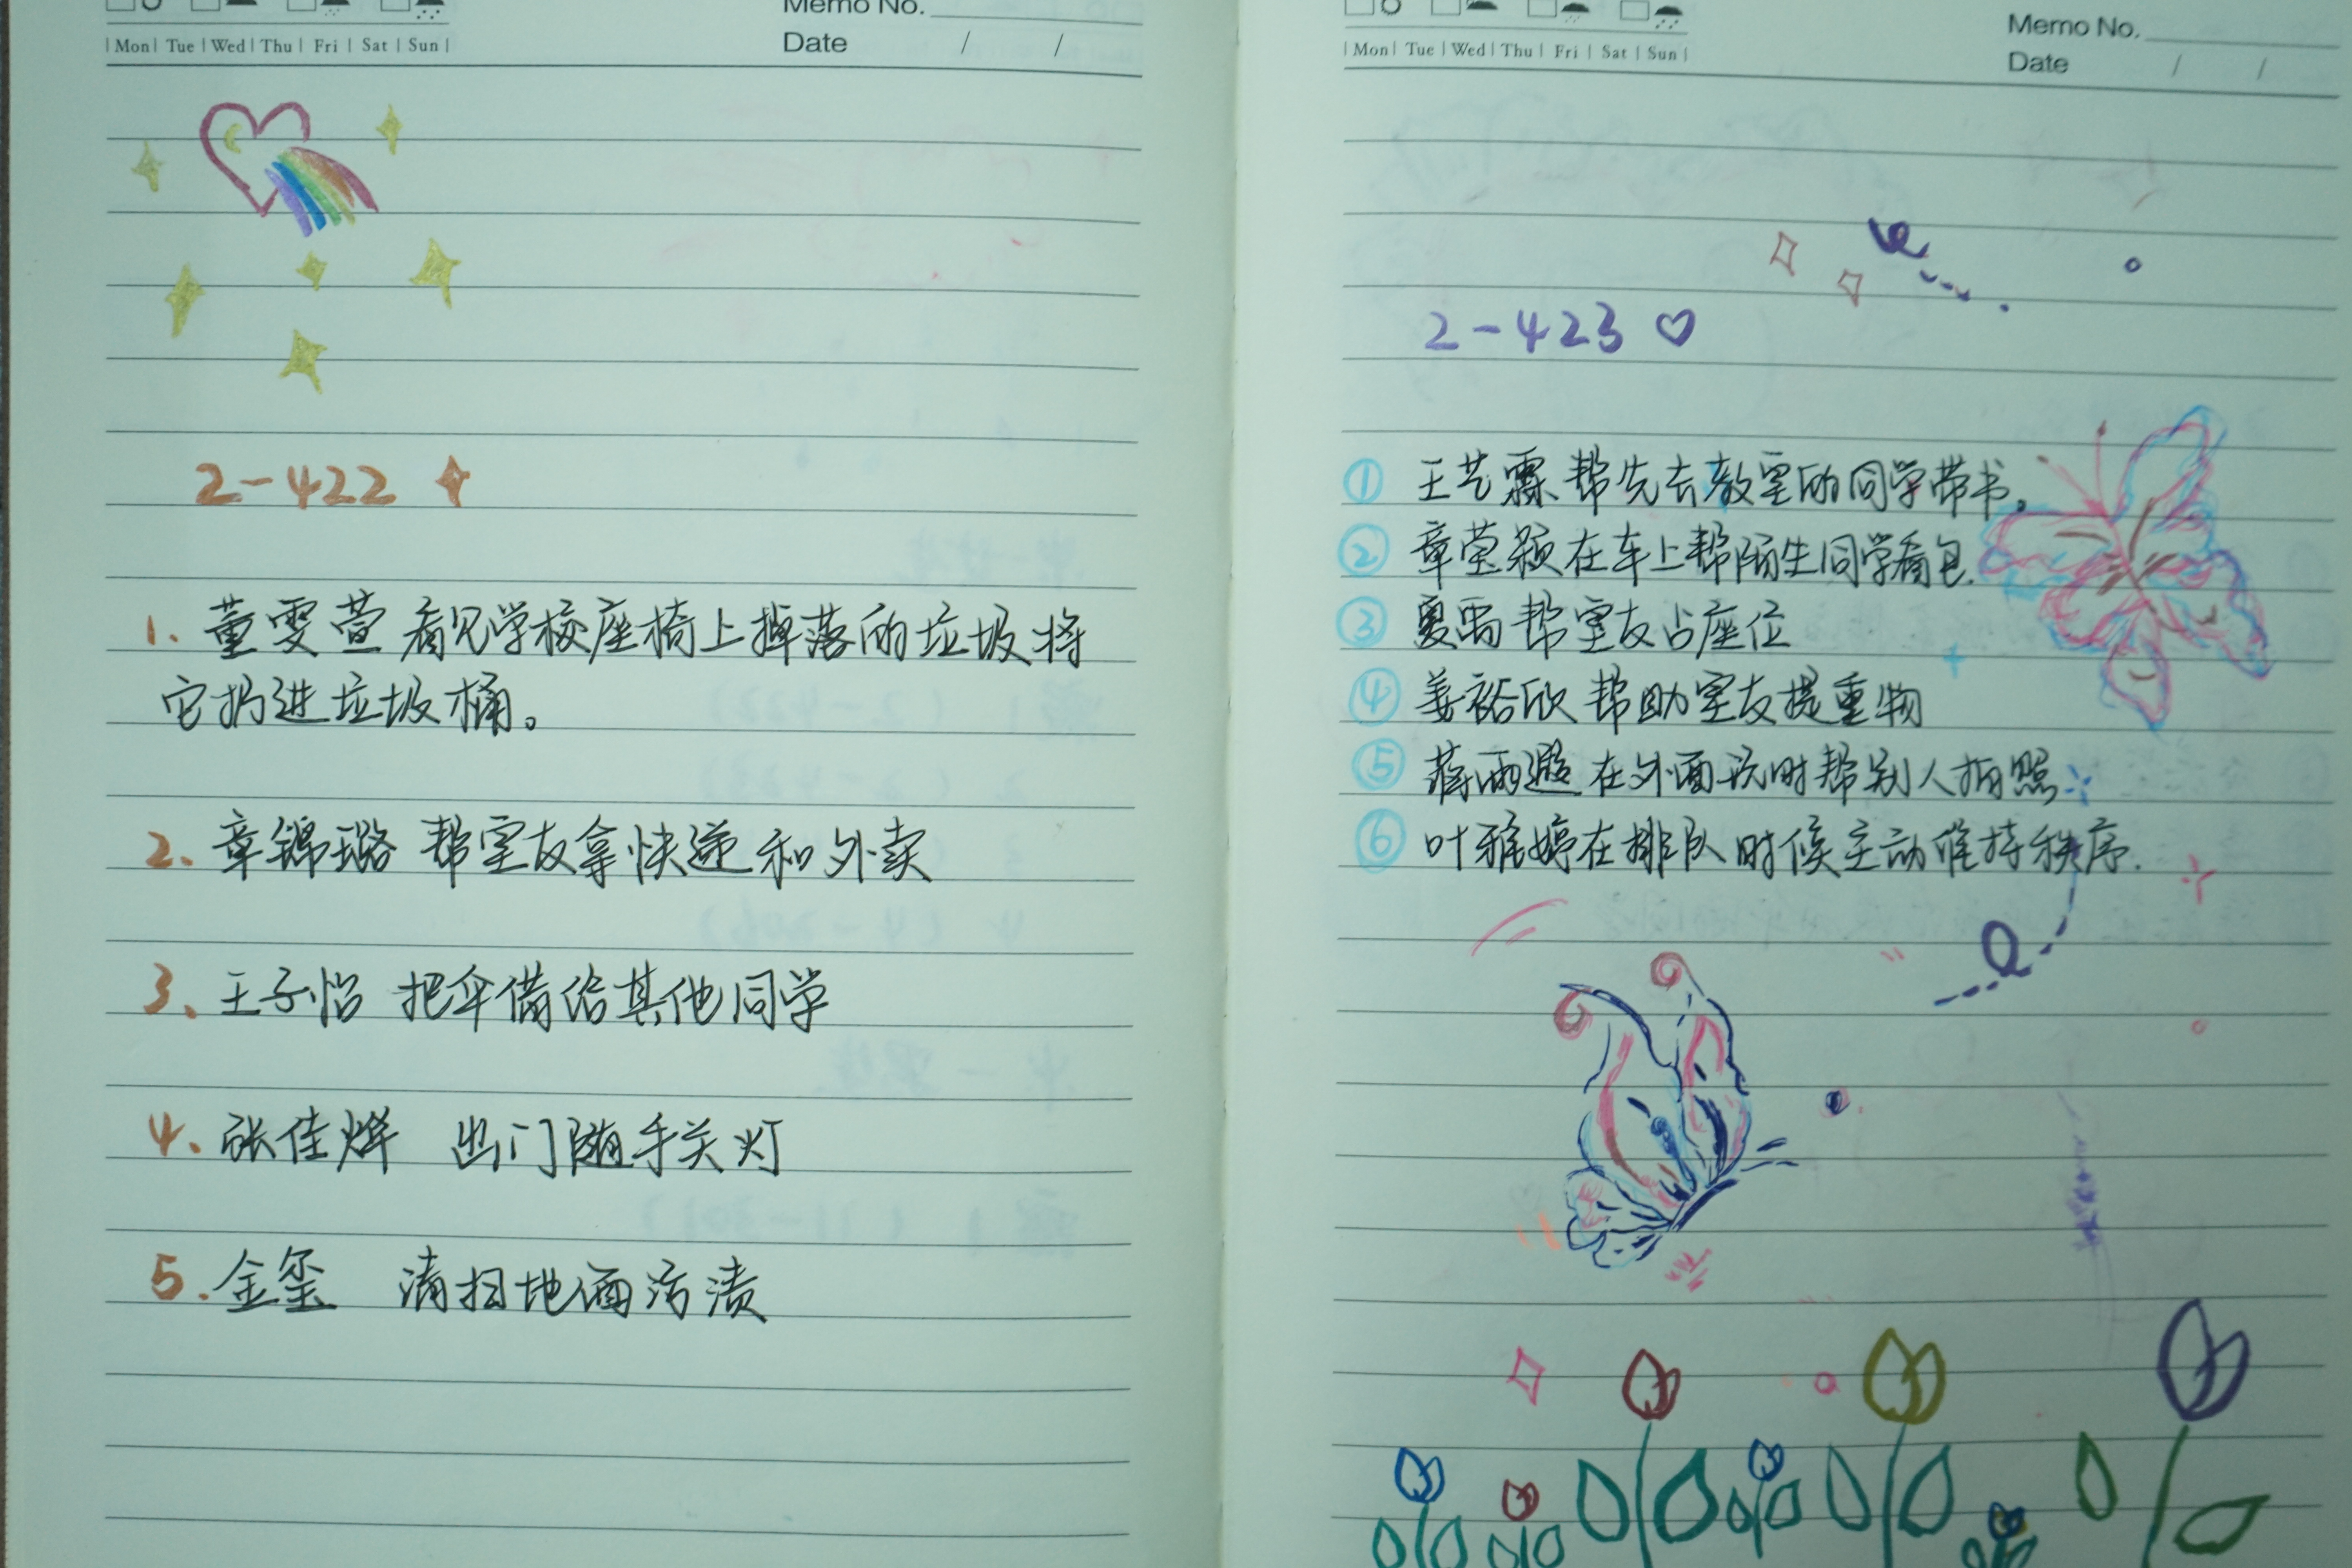 Memo No.
Mon Tue Wed Thu Fri Sat Sun
Date / /
2-422
1. 董雯萱 看见学校座椅上掉落的垃圾将
它扔进垃圾桶。
2. 章锦璐 帮室友拿快递和外卖
3. 王子怡 把伞借给其他同学
4. 张佳烨 出门随手关灯
5. 金玺 清扫地面污渍
Memo No.
Mon Tue Wed Thu Fri Sat Sun
Date / /
2-423
① 王艺霖 帮先去教室的同学带书。
② 章莹颖在车上帮陌生同学看包.
③ 夏雨 帮室友占座位
④ 姜裕欣 帮助室友提重物
⑤ 蒋雨遐 在外面玩时帮别人拍照
⑥ 叶雅婷在排队时候主动维持秩序.